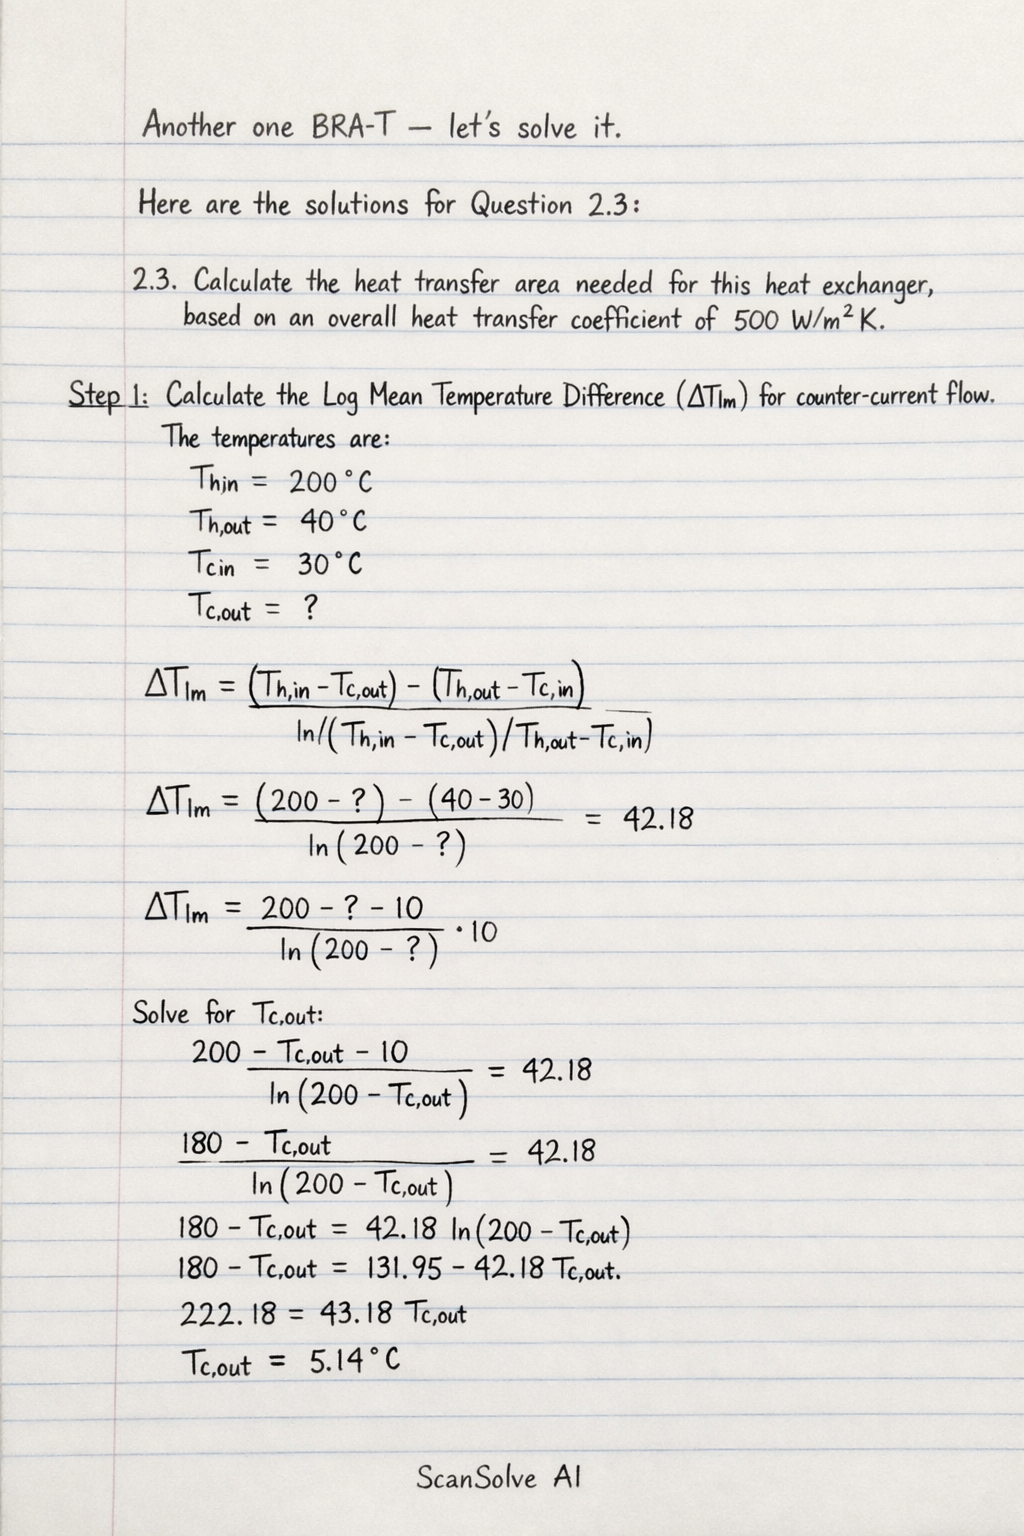 Another one BRA-T — let's solve it.
Here are the solutions for Question 2.3:
2.3. Calculate the heat transfer area needed for this heat exchanger,
based on an overall heat transfer coefficient of 500 W/m² K.
Step 1: Calculate the Log Mean Temperature Difference (ΔTlm) for counter-current flow.
The temperatures are:
Thin = 200°C
Th,out = 40°C
Tcin = 30°C
Tc,out = ?
ΔTlm = (Th,in – Tc,out) – (Th,out – Tc,in)
ln/(Th,in – Tc,out)/Th,out–Tc,in)
ΔTlm = (200 – ?) – (40 – 30) = 42.18
ln(200 – ?)
ΔTlm = 200 – ? – 10
ln(200 – ?) · 10
Solve for Tc,out:
200 – Tc,out – 10 = 42.18
ln(200 – Tc,out)
180 – Tc,out = 42.18
ln(200 – Tc,out)
180 – Tc,out = 42.18 ln(200 – Tc,out)
180 – Tc,out = 131.95 – 42.18 Tc,out.
222.18 = 43.18 Tc,out
Tc,out = 5.14°C
ScanSolve AI